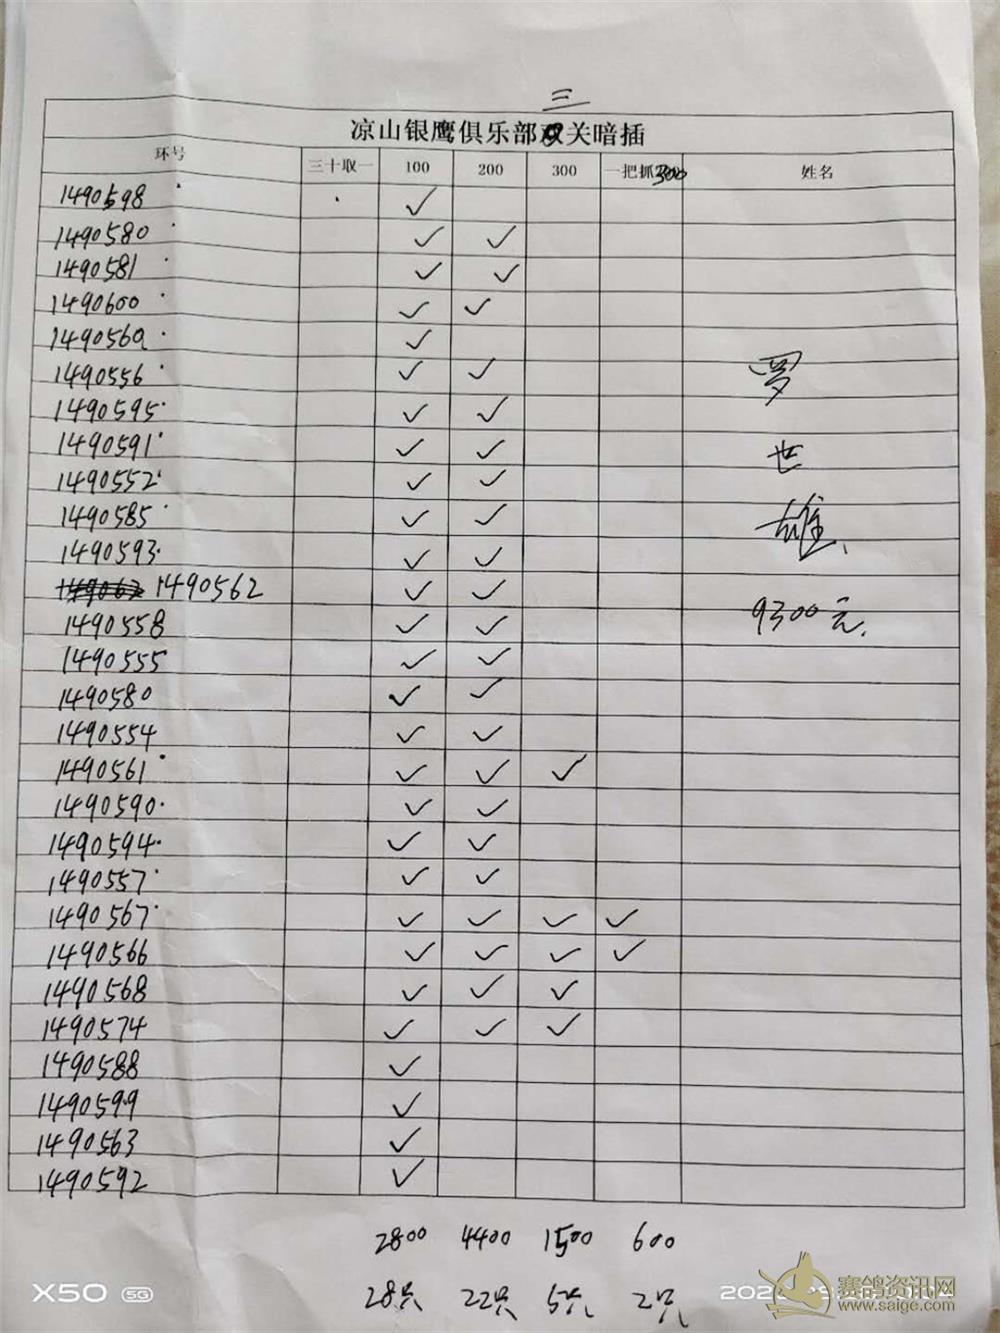 三
凉山银鹰俱乐部双关暗插
环号 三十取一 100 200 300 一把抓300 姓名
1490598 ✓
1490580 ✓ ✓
1490581 ✓ ✓
1490600 ✓ ✓
1490560 ✓
1490556 ✓ ✓
1490595 ✓ ✓
1490591 ✓ ✓
1490552 ✓ ✓
1490585 ✓ ✓
1490593 ✓ ✓
1490562 ✓ ✓
1490558 ✓ ✓
1490555 ✓ ✓
1490580 ✓ ✓
1490554 ✓ ✓
1490561 ✓ ✓ ✓
1490590 ✓ ✓
1490594 ✓ ✓
1490557 ✓ ✓
1490567 ✓ ✓ ✓ ✓
1490566 ✓ ✓ ✓ ✓
1490568 ✓ ✓ ✓
1490574 ✓ ✓ ✓
1490588 ✓
1490599 ✓
1490563 ✓
1490592 ✓
罗
世
雄
9300元
2800 4400 1500 600
28只 22只 5只 2只
X50 5G
赛鸽资讯网
www.saige.com